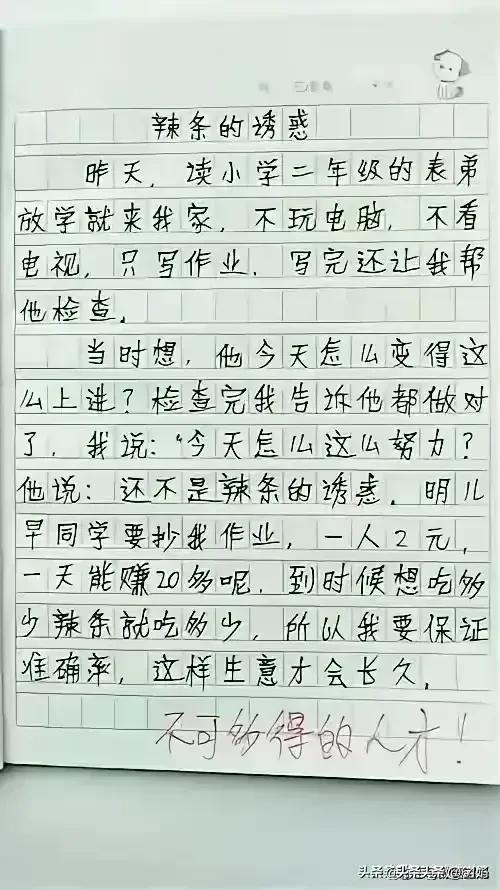 辣条的诱惑
昨天，读小学二年级的表弟
放学就来我家，不玩电脑，不看
电视，只写作业，写完还让我帮
他检查。
当时想，他今天怎么变得这
么上进？检查完我告诉他都做对
了，我说：“今天怎么这么努力？
他说：还不是辣条的诱惑，明儿
早同学要抄我作业，一人2元，
一天能赚20多呢，到时候想吃多
少辣条就吃多少，所以我要保证
准确率，这样生意才会长久。
不可多得的人才！